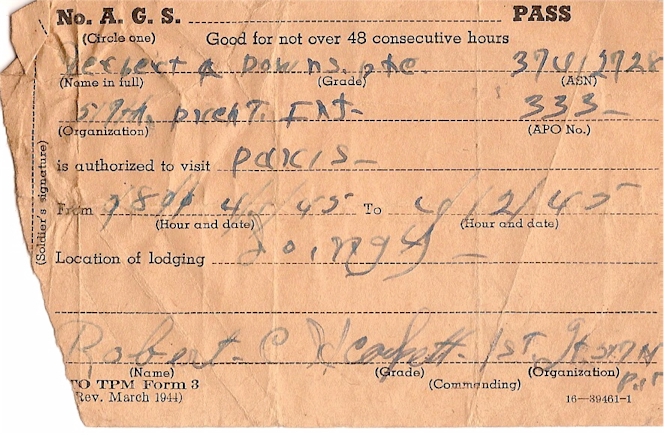 No. A. G. S. PASS
(Circle one) Good for not over 48 consecutive hours
Herbert A Downs. pfc. 37412728
(Name in full) (Grade) (ASN)
Inf- 333-
(Organization) (APO No.)
is authorized to visit paris-
From 4/ /45 To 4/2/45
(Hour and date) (Hour and date)
Location of lodging
Robert C 1st
(Name) (Grade) (Commanding) (Organization)
TO TPM Form 3
Rev. March 1944) 16—39461-1
(Soldier's signature)